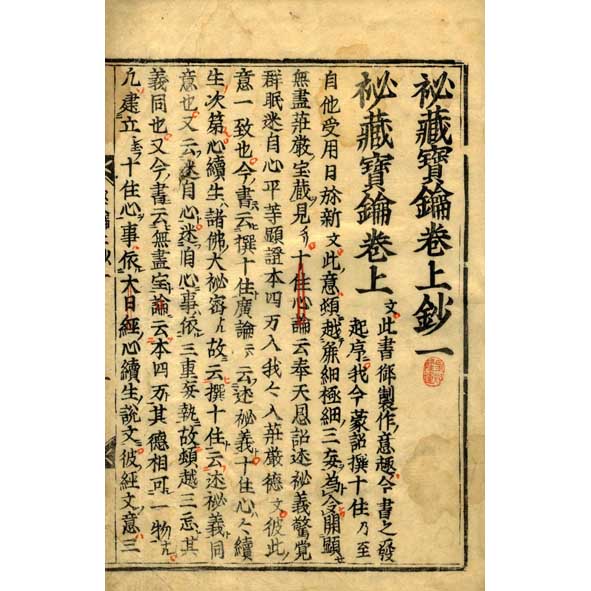 祕藏寶鑰卷上鈔一
祕藏寶鑰卷上
文此書御製作意趣今書之發
起序我今蒙詔撰十住乃至
自他受用日於新文此意頓越麁細極細三妄為令開顯
無盡莊嚴宝蔵見タリ十住心論云奉天恩詔述秘義驚覚
群眠迷自心平等顕證本四万入我々入莊厳德文彼此
意一致也今書云撰十住廣論云述秘義十住心ハ續
生次第心續生ハ諸佛大祕密故云撰十住云述祕義同
意也又云迷自心迷自心事依三重妄執故頓越三妄其
義同也又今書云無盡宝論云本四万其德相可一物
凡建立十住心事依大日經心續生說文彼經文意三